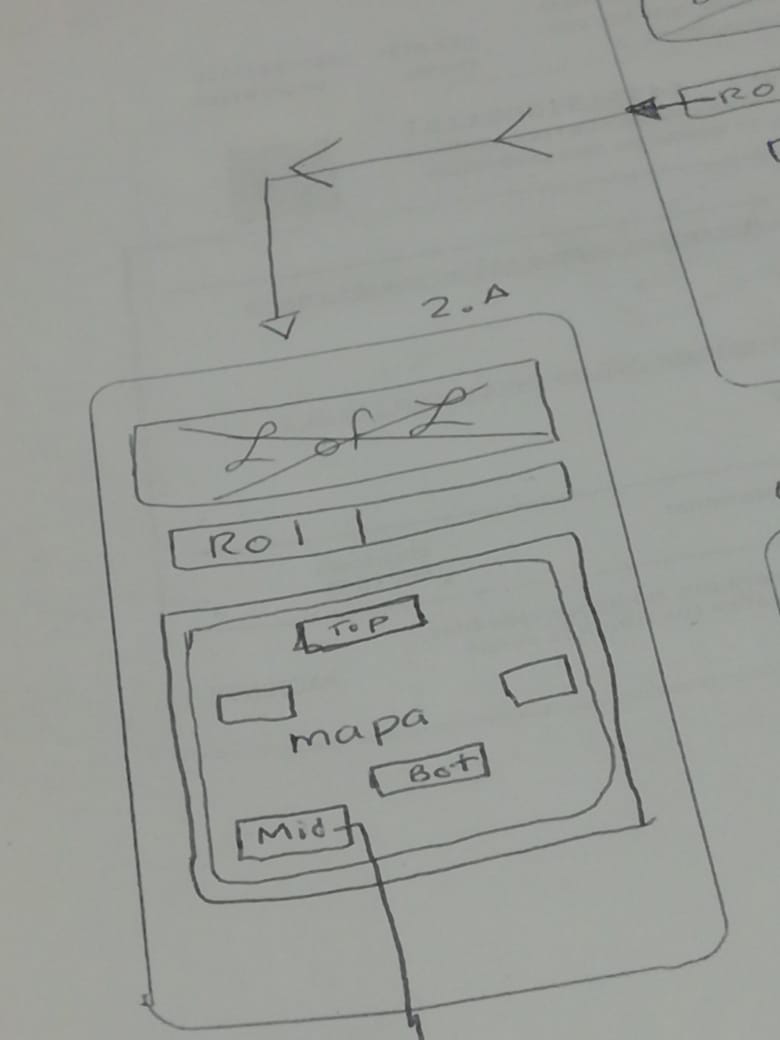 RO
2.A
L of L
Rol
Top
mapa
Bot
Mid